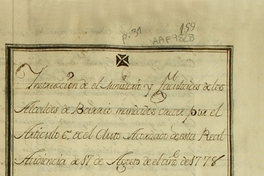 p. 31
159
Instruccion de el Numero y facultades de los
Alcaldes de Barrio mandados crear por el
Articulo 6º de el Auto Acordado de esta Real
Audiencia de 17 de Agosto de el año de 1778